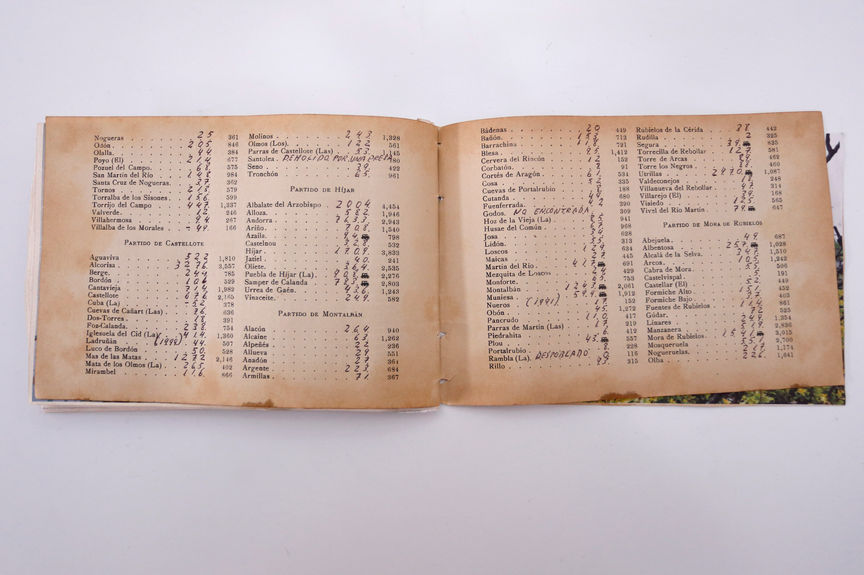 Nogueras 25 361
Odón 205 846
Olalla 94 384
Poyo (El) 214 677
Pozuel del Campo 68 575
San Martín del Río 148 984
Santa Cruz de Nogueras 37 362
Tornos 218 579
Torralba de los Sisones 156 599
Torrijo del Campo 447 1,237
Valverde 12 246
Villahermosa 94 267
Villalba de los Morales 44 166
PARTIDO DE CASTELLOTE
Aguaviva 522 1,810
Alcorisa 3276 3,557
Berge 244 785
Bordón 106 529
Cantavieja 714 1,982
Castellote 676 2,165
Cuba (La) 52 378
Cuevas de Cañart (Las) 86 636
Dos-Torres 18 391
Foz-Calanda 238 754
Iglesuela del Cid (La) 414 1,360
Ladruñán (1998) 44 507
Luco de Bordón 30 528
Mas de las Matas 1272 2,146
Mata de los Olmos (La) 265 402
Mirambel 116 866
Molinos 243 1,328
Olmos (Los) 122 561
Parras de Castellote (Las) 53 1,145
Santolea DEMOLIDO POR UNA PRESA
Seno 39 422
Tronchón 69 961
PARTIDO DE HÍJAR
Albalate del Arzobispo 2004 4,454
Alloza 582 1,946
Andorra 7633 2,943
Ariño 708 1,540
Azaila 94 798
Castelnou 328 532
Híjar 1709 3,833
Jatiel 40 241
Oliete 364 2,535
Puebla de Híjar (La) 908 2,276
Samper de Calanda 783 2,803
Urrea de Gaén 436 1,243
Vinaceite 249 582
PARTIDO DE MONTALBÁN
Alacón 264 940
Alcaine 63 1,262
Alpeñés 22 236
Allueva 29 551
Anadón 27 364
Argente 223 684
Armillas 71 367
Bádenas 20 449
Bañón 153 712
Barrachina 118 721
Blesa 95 1,412
Cervera del Rincón 12 152
Corbatón 8 91
Cortés de Aragón 61 534
Cosa 52 335
Cuevas de Portalrubio 8 188
Cutanda 44 680
Fuenferrada 42 290
Godos NO ENCONTRADA 309
Hoz de la Vieja (La) 85 941
Huesa del Común 67 968
Josa 34 628
Lidón 55 313
Loscos 129 634
Maicas 27 445
Martín del Río 417 691
Mezquita de Loscos 24 429
Monforte 69 753
Montalbán 1243 2,061
Muniesa 599 1,912
Nueros (1991) 17 152
Obón 45 1,272
Pancrudo 110 417
Parras de Martín (Las) 17 219
Piedrahita 6 412
Plou 45 557
Portalrubio 8 228
Rambla (La) DESPOBLADO 0 116
Rillo 95 315
Rubielos de la Cérida 38 442
Rudilla 2 325
Segura 39 835
Torrecilla de Rebollar 127 581
Torre de Arcas 89 462
Torre los Negros 88 460
Utrillas 2970 1,087
Valdeconejos 18 248
Villanueva del Rebollar 47 314
Villarejo (El) 39 168
Visiedo 125 565
Vivel del Río Martín 79 647
PARTIDO DE MORA DE RUBIELOS
Abejuela 49 687
Albentosa 257 1,028
Alcalá de la Selva 347 1,510
Arcos 105 1,242
Cabra de Mora 55 596
Castelvispal 5 191
Castellar (El) 52 449
Formiche Alto 151 452
Formiche Bajo 32 403
Fuentes de Rubielos 114 861
Gúdar 72 525
Linares 249 1,354
Manzanera 519 2,836
Mora de Rubielos 1541 3,015
Mosqueruela 551 2,700
Nogueruelas 217 1,174
Olba 226 1,641